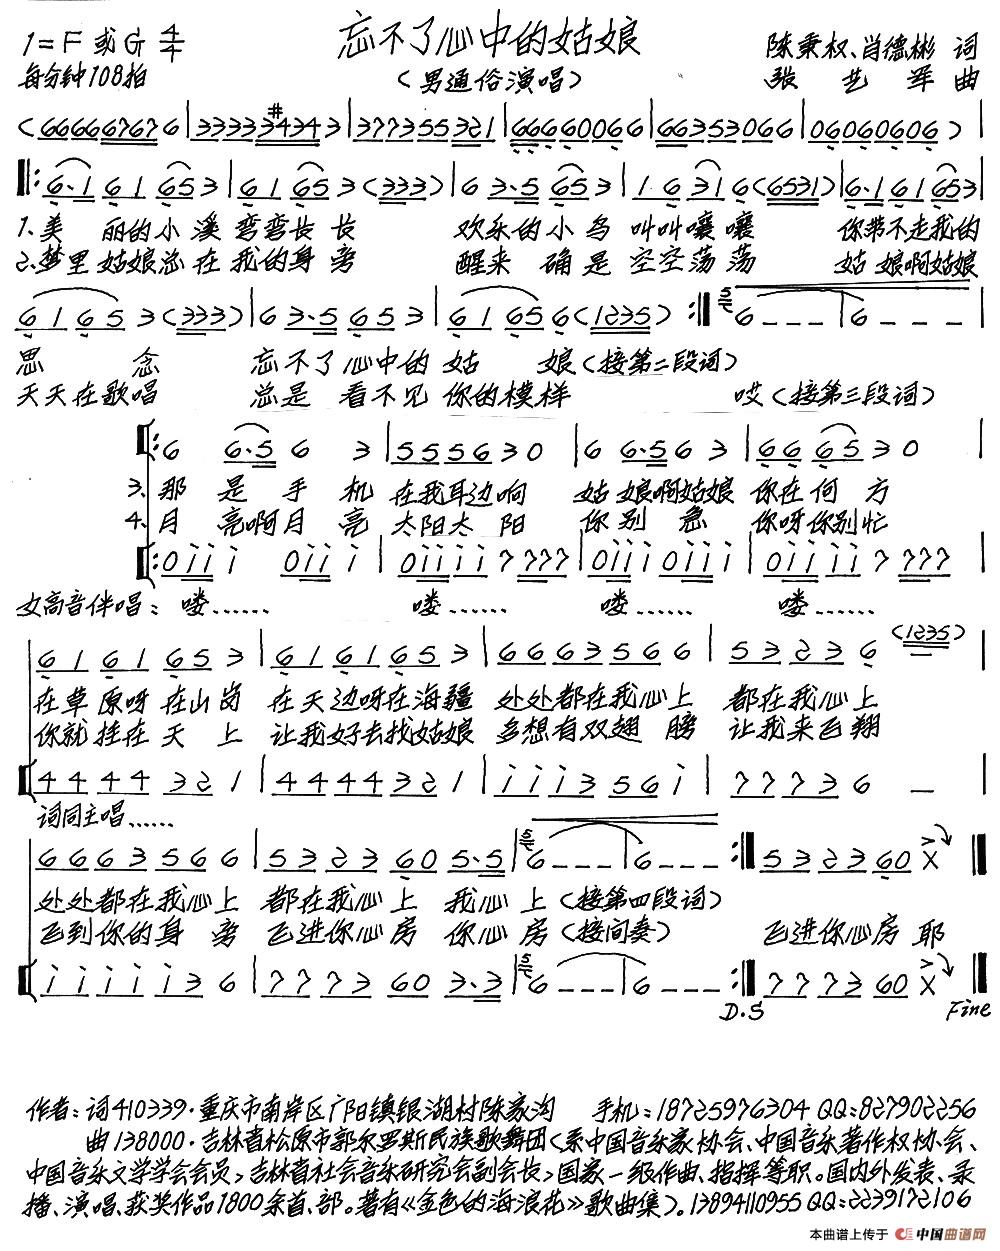 忘不了心中的姑娘
1=F或G 4/4
陈秉权、肖德彬 词
每分钟108拍
(男通俗演唱)
张艺军 曲
(66666767 6 | 3333 3#434 3 | 377355321 | 66660066 | 66353066 | 06060606) |
‖: 6·1 61 65 3 | 61 65 3 (333) | 6 3·5 65 3 | 1 6 31 6 (6531) | 6·1 61 65 3 |
1.美 丽的小溪 弯弯长长 欢乐的小鸟 叫叫嚷嚷 你带不走我的
2.梦里姑娘总在我的身旁 醒来 确是空空荡荡 姑娘啊姑娘
61 65 3 (333) | 6 3·5 65 3 | 61 65 6 (1235) :‖ 5 6 - - - | 6 - - - |
思 念 忘不了心中的姑 娘(接第二段词)
天天在歌唱 总是 看不见你的模样 哎(接第三段词)
‖: 6 6·5 6 3 | 555630 | 6 6·5 6 3 | 66 65 30 |
3.那是手机 在我耳边响 姑娘啊姑娘 你在何方
4.月亮啊月亮 太阳太阳 你别急 你呀你别忙
‖: 0iii 0iii | 0iiii 7 777 | 0iii 0iii | 0iiii 7 777 |
女高音伴唱:喽…… 喽…… 喽…… 喽……
61 61 65 3 | 61 61 65 3 | 66635666 | 5323 6 (1235) |
在草原呀在山岗 在天边呀在海疆 处处都在我心上 都在我心上
你就挂在天上 让我好去找姑娘 多想有双翅膀 让我来飞翔
4444 32 1 | 4444 32 1 | iii3 56 i | 7773 6 - |
词同主唱……
6663 56 6 | 5323 60 5·5 | 5 6 - - - | 6 - - - :‖ 5323 60 X ‖
处处都在我心上 都在我心上 我心上(接第四段词)
飞到你的身旁 飞进你心房 你心房(接间奏) 飞进你心房 耶
iiiii3 6 | 7773 60 3·3 | 5 6 - - - | 6 - - - :‖ 7773 60 X ‖
D.S Fine
作者:词410339·重庆市南岸区广阳镇银湖村陈家沟 手机:18725976304 QQ:827902256
曲138000·吉林省松原市郭尔罗斯民族歌舞团(系中国音乐家协会、中国音乐著作权协会、
中国音乐文学学会会员,吉林省社会音乐研究会副会长,国家一级作曲、指挥等职。国内外发表、录
播、演唱、获奖作品1800余首、部。著有《金色的海浪花》歌曲集)。13894110955 QQ:2239172106
本曲谱上传于 中国曲谱网